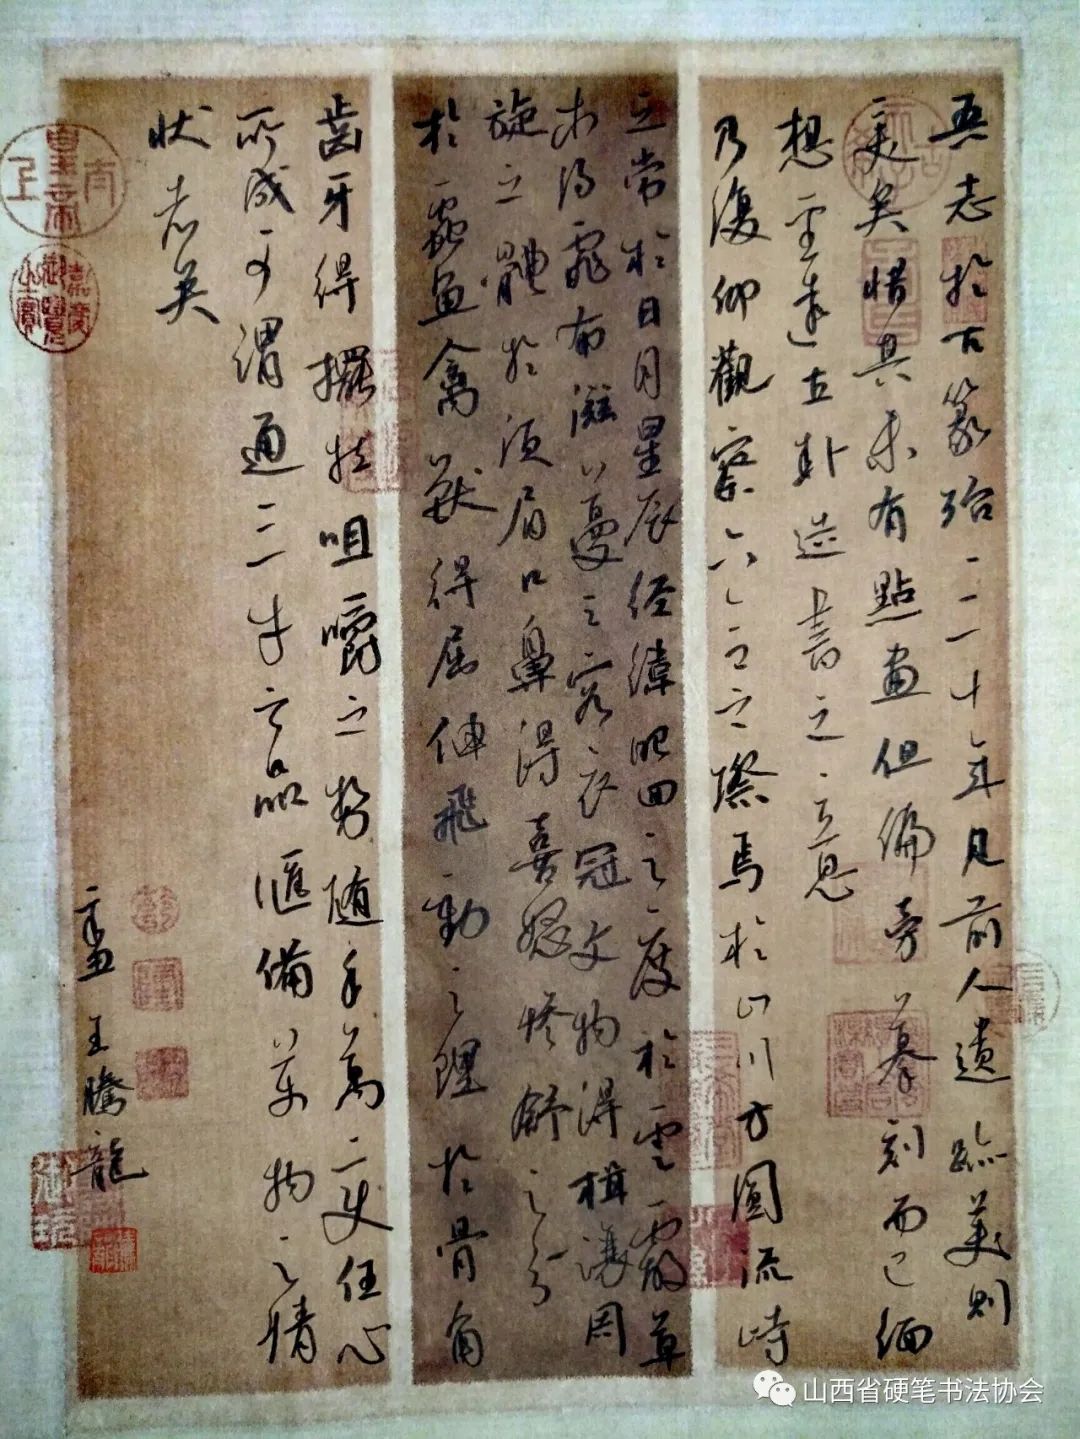 吾志於古篆殆三十年見前人遺跡美則
美矣惜其未有點畫但偏旁摹刻而已緬
想聖達立卦造書之意
乃復仰觀察六合之際焉於山川方圓流峙
之常於日月星辰經緯昭回之度於雲霞草
木得霏布滋蔓之容衣冠文物得揖讓周
旋之體於須眉口鼻得喜怒慘舒之分
於蟲魚禽獸得屈伸飛動之理於骨角
齒牙得擺拉咀嚼之勢隨手萬變任心
所成可謂通三才之品匯備萬物之情
狀者矣
王騰龍
山西省硬笔书法协会